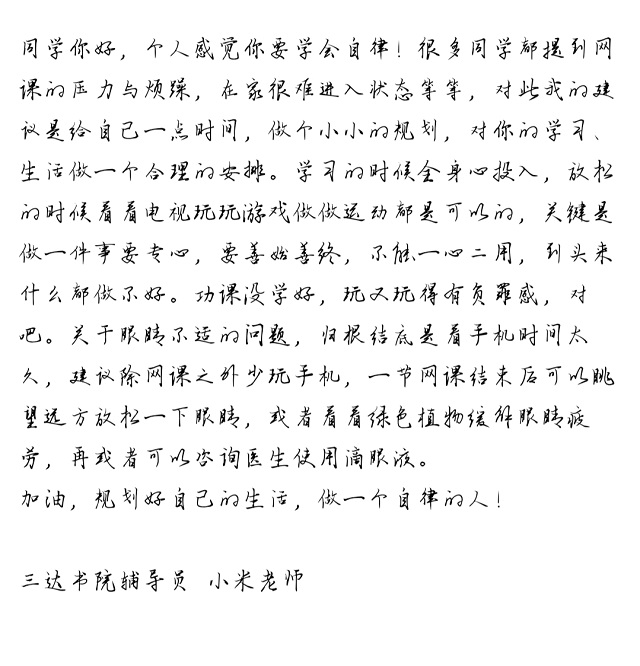 同学你好，个人感觉你要学会自律！很多同学都提到网
课的压力与烦躁，在家很难进入状态等等，对此我的建
议是给自己一点时间，做个小小的规划，对你的学习、
生活做一个合理的安排。学习的时候全身心投入，放松
的时候看看电视玩玩游戏做做运动都是可以的，关键是
做一件事要专心，要善始善终，不能一心二用，到头来
什么都做不好。功课没学好，玩又玩得有负罪感，对
吧。关于眼睛不适的问题，归根结底是看手机时间太
久，建议除网课之外少玩手机，一节网课结束后可以眺
望远方放松一下眼睛，或者看看绿色植物缓解眼睛疲
劳，再或者可以咨询医生使用滴眼液。
加油，规划好自己的生活，做一个自律的人！
三达书院辅导员 小米老师